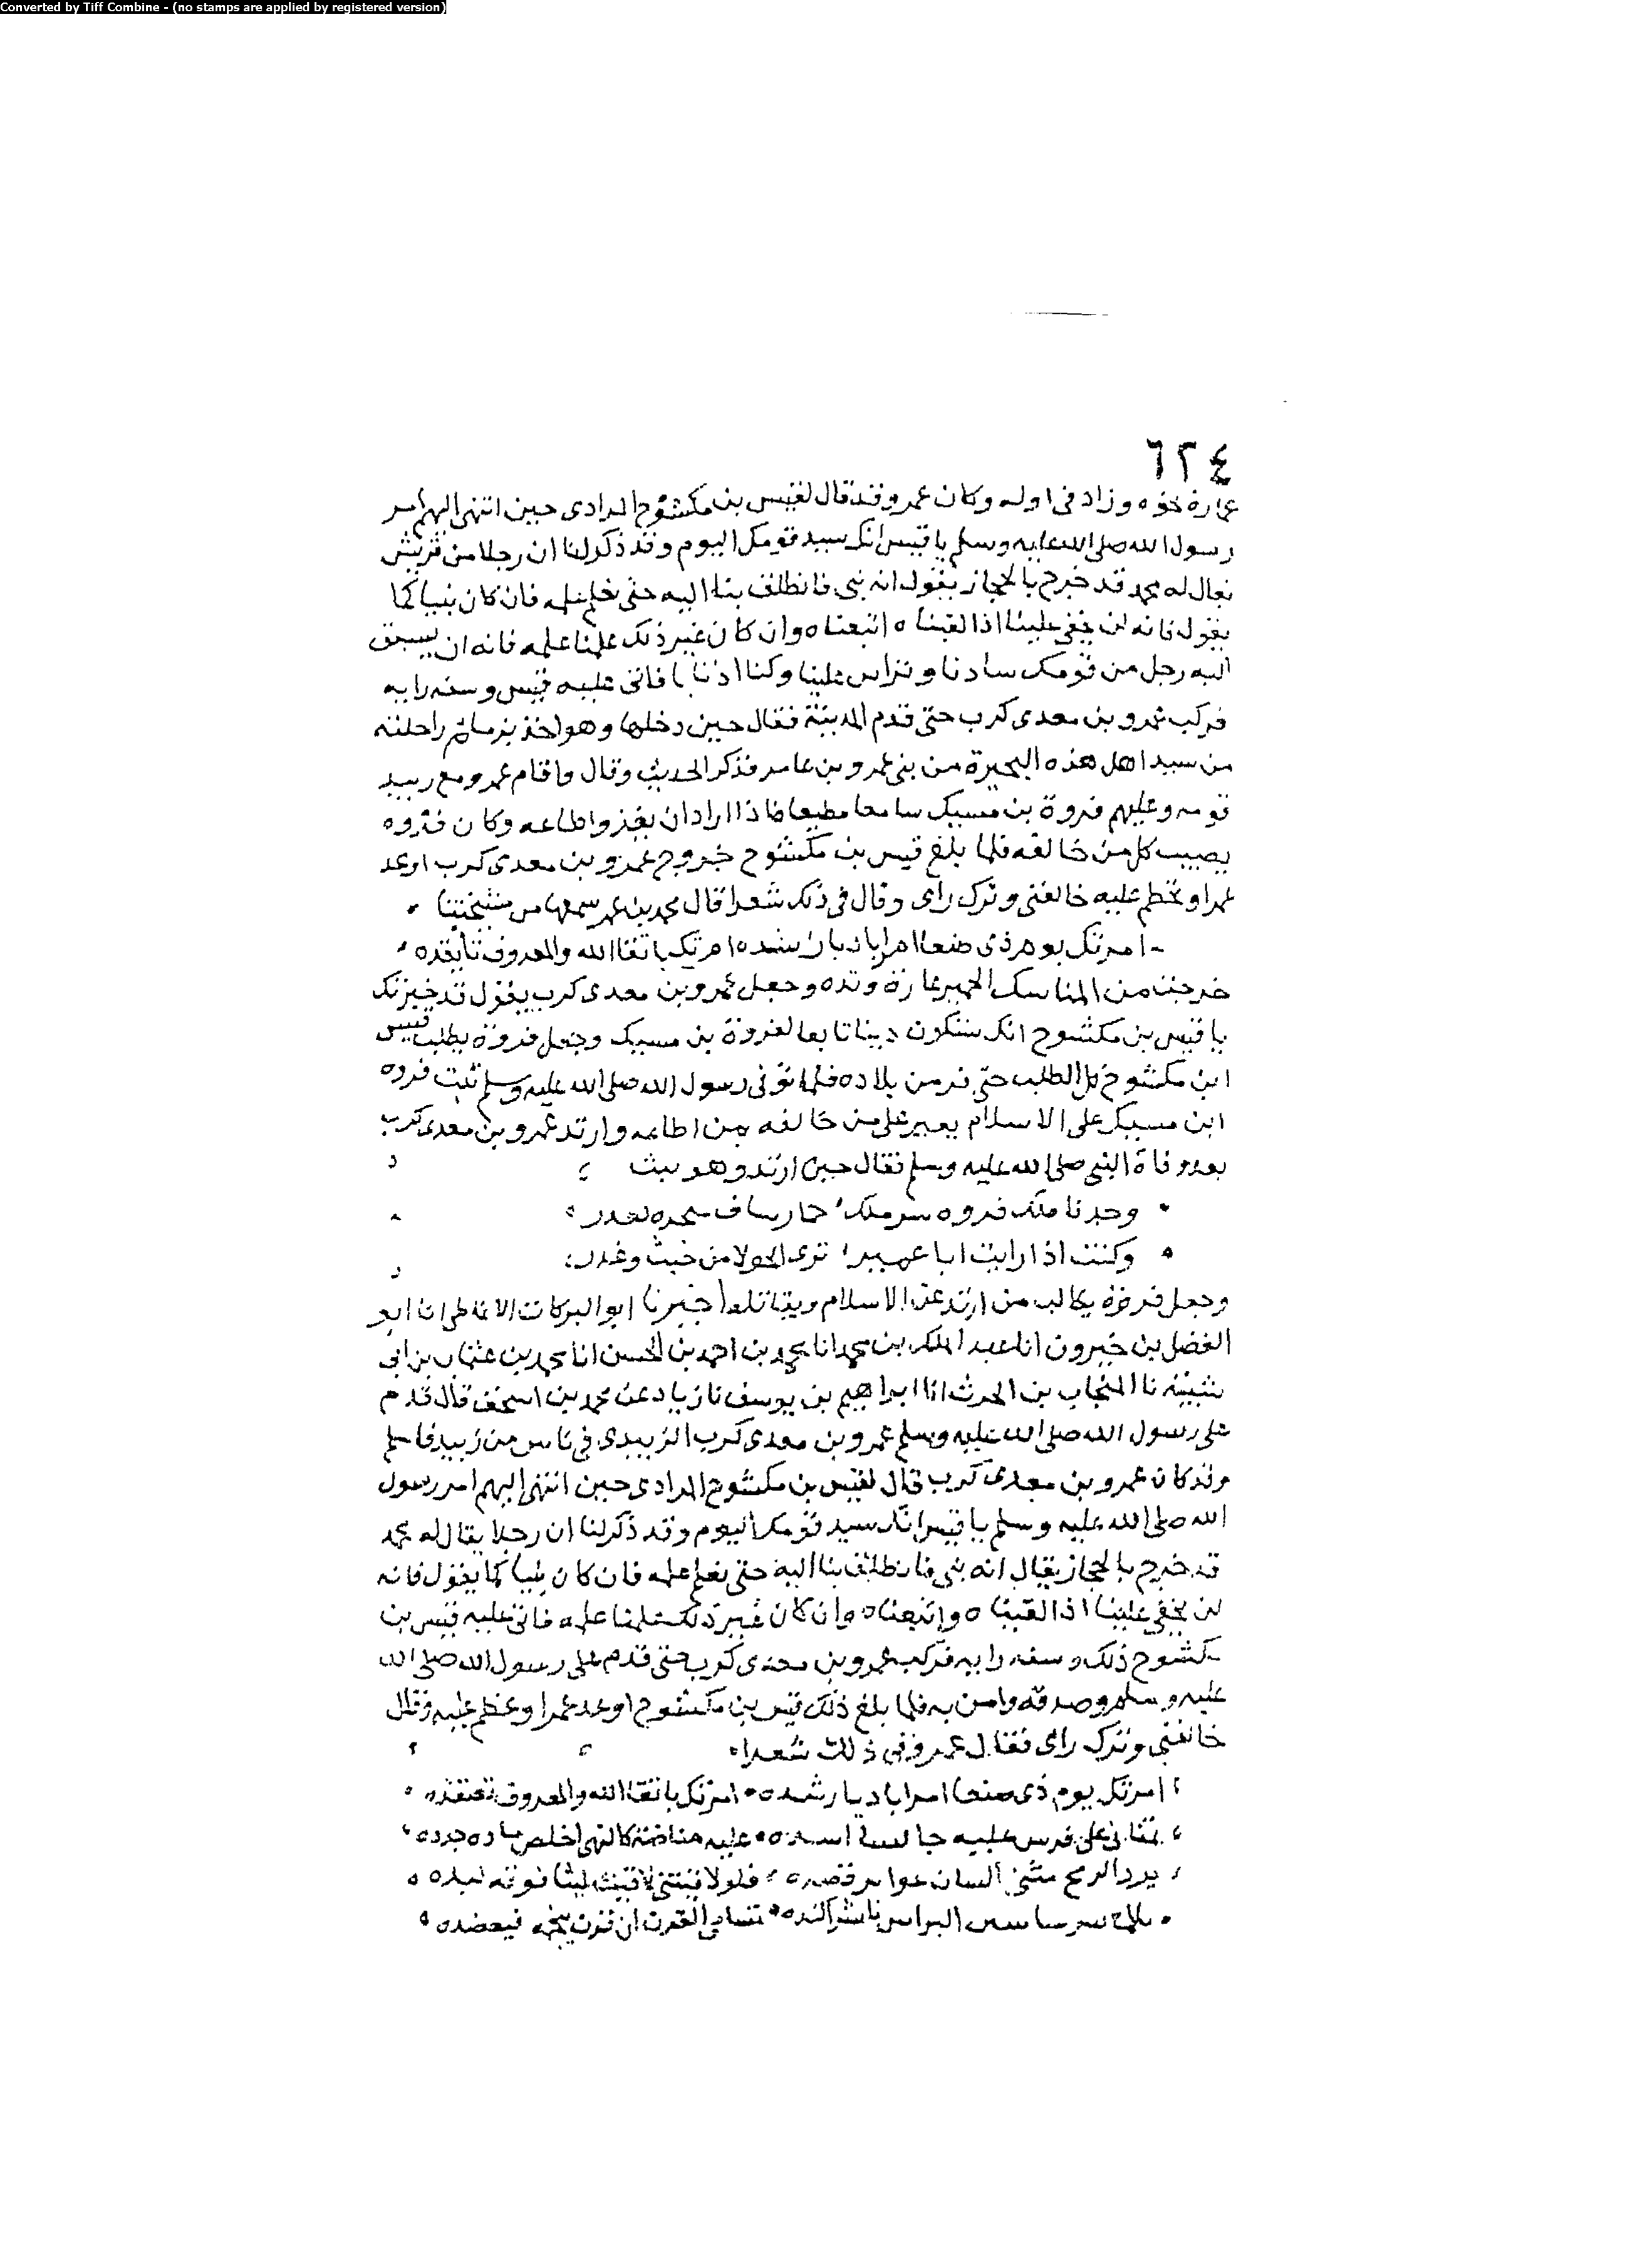 Converted by Tiff Combine - (no stamps are applied by registered version)
٦٢٤
عمارة نحوه وزاد في اوله وكان عمرو قد قال لقيس بن مكشوح المرادى حين انتهى اليهم امر
رسول الله صلى الله عليه وسلم يا قيس انك سيد قومك اليوم وقد ذكر لنا ان رجلا من قريش
يقال له محمد قد خرج بالحجاز يقول انه نبى فانطلق بنا اليه حتى نعلم علمه فان كان نبيا كما
يقول فانه لن يخفى علينا اذا لقيناه اتبعناه وان كان غير ذلك علمنا علمه فانه ان يسبق
اليه رجل من قومك سادنا وتراس علينا وكنا اذنابا فابى عليه قيس وسفه رايه
فركب عمرو بن معدى كرب حتى قدم المدينة فقال حين دخلها وهو اخذ بزمام راحلته
من سيد اهل هذه البحيرة من بنى عمرو بن عامر فذكر الحديث وقال واقام عمرو مع زبيد
قومه وعليهم فروة بن مسيك سامعا مطيعا فاذا اراد ان يغزو اطاعه وكان فروه
يصيب كل من خالفه فلما بلغ قيس بن مكشوح خروج عمرو بن معدى كرب اوعد
عمرا وتحطم عليه خالفنى وترك راى وقال فى ذلك شعرا قال محمد بن عمر سمعها من مشيختنا
امرتك يوم ذى صنعا امرا باديا رشده امرتك باتقا الله والمعروف
خرجت من المنا الحمير وتده وجعل عمرو بن معدى كرب يقول قد خبرتك
يا قيس بن مكشوح انك ستكون تابعا لفروة بن مسيك وجعل فروة يطلب قيس
ابن مكشوح كل الطلب حتى فر من بلاده فلما توفى رسول الله صلى الله عليه وسلم ثبت فروه
ابن مسيك على الاسلام يغير على من خالفه بمن اطاعه وارتد عمرو بن معدى كرب
بعد وفاة النبى صلى الله عليه وسلم فقال حين ارتد وهو يث
وجدنا ملك فروه شر ملك حمار ساف
وكنت اذا رايت ابا عمير ترى الحولا من خبث وغدر
وجعل فروة يطالب من ارتد عن الاسلام ويقاتله اخبرنا ابو البركات الانماطى انا ابو
الفضل بن خيرون انا عبد الملك بن محمد انا محمد بن احمد بن الحسن انا محمد بن عثمان بن ابى
شيبة نا المنجاب بن الحرث انا ابراهيم بن يوسف نا زياد عن محمد بن اسحق قال قدم
على رسول الله صلى الله عليه وسلم عمرو بن معدى كرب الزبيدى فى ناس من زبيد فاسلم
وقد كان عمرو بن معدى كرب قال لقيس بن مكشوح المرادى حين انتهى اليهم امر رسول
الله صلى الله عليه وسلم يا قيس انك سيد قومك اليوم وقد ذكر لنا ان رجلا يقال له محمد
قد خرج بالحجاز يقال انه نبى فانطلق بنا اليه حتى نعلم علمه فان كان نبيا كما يقول فانه
لن يخفى علينا اذا لقيناه واتبعناه وان كان غير ذلك علمنا علمه فابى عليه قيس بن
مكشوح ذلك وسفه رايه فركب عمرو بن معدى كرب حتى قدم على رسول الله صلى الله
عليه وسلم وصدقه وامن به فلما بلغ ذلك قيس بن مكشوح اوعد عمرا وعظم عليه وقال
خالفنى وترك راى فقال عمرو فى ذلك شعرا
امرتك يوم ذى صنعا امرا باديا رشده امرتك باتقا الله والمعروف تعتقده
على فرس عليه جالسا اسده عليه مفاضة كالنهى اخلص جدده
يرد الرمح السنان عوا قصده فلولا قيتنى لاقيت ليثا فوقه لبده
البراثن ناشزا كتده القرن ان قرن فيعضده